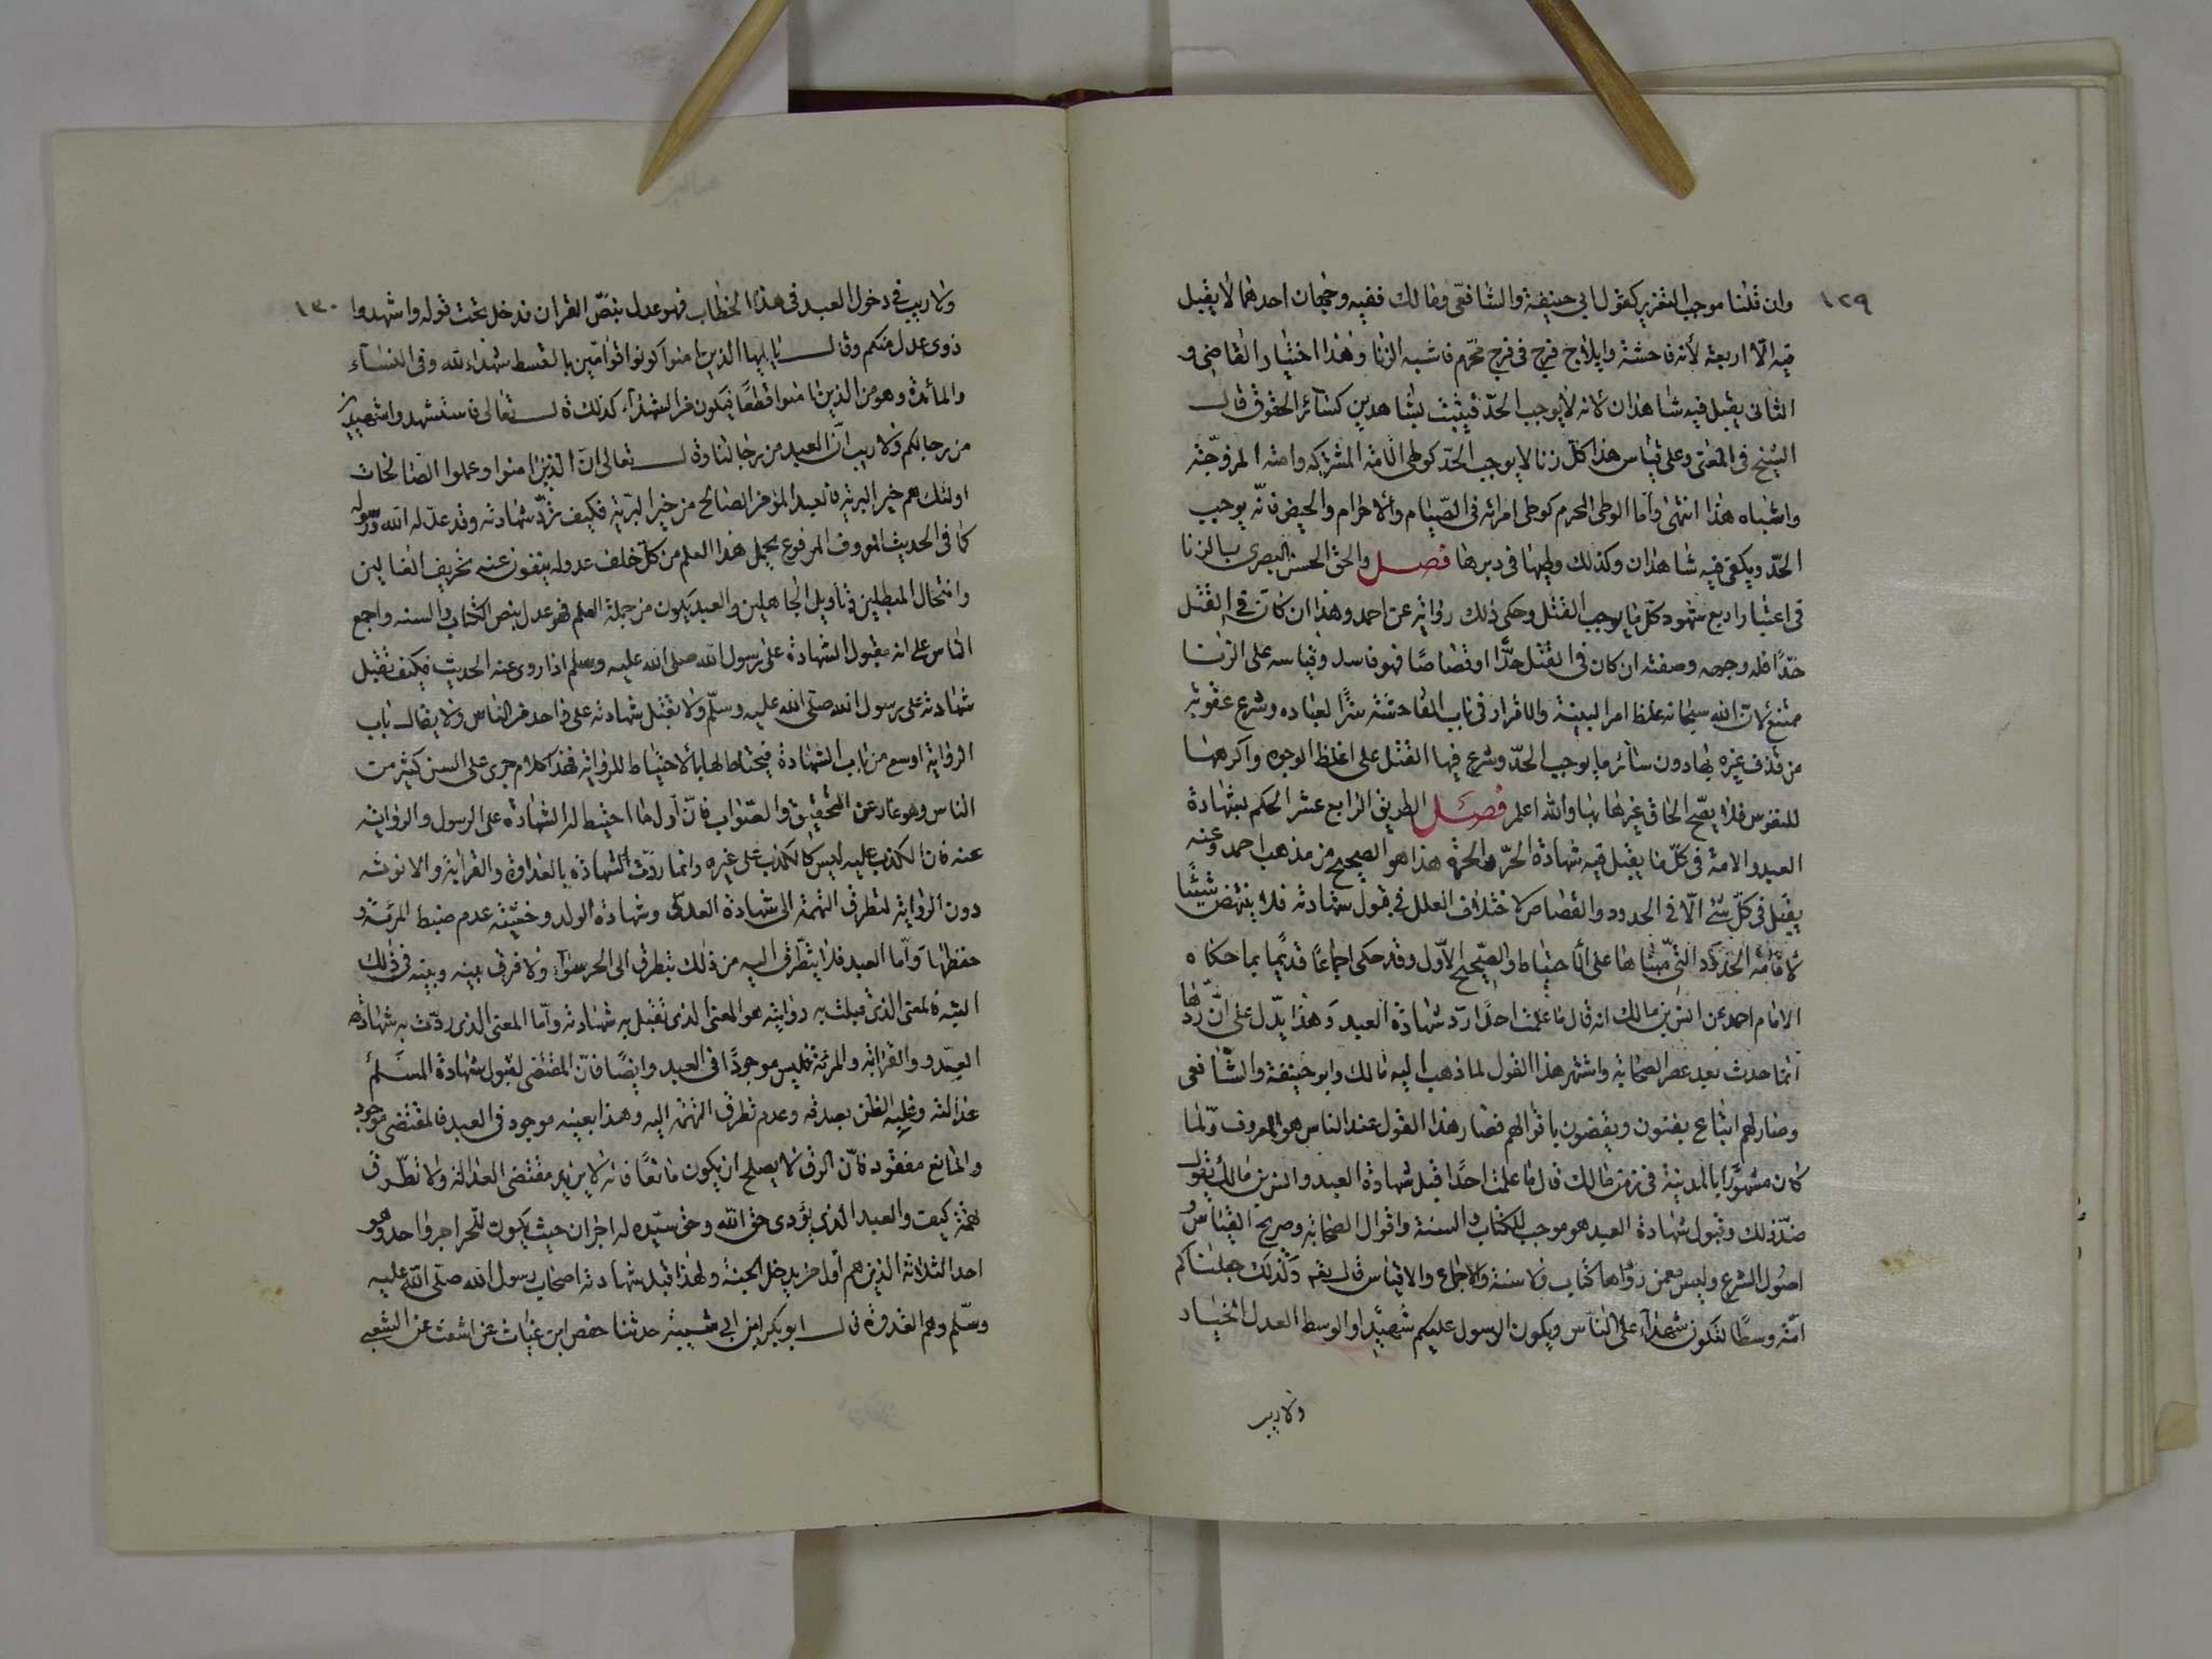 ١٢٩
وان قلنا موجبه التعزير كقول ابي حنيفة والشافعي ومالك ففيه وجهان احدهما لا يقبل
فيه الا اربعة لأنه فاحشة وايلاج فرج في فرج محرم فاشبه الزنا وهذا اختيار القاضي و
الثاني يقبل فيه شاهدان لانه لا يوجب الحدّ فيثبت بشاهدين كسائر الحقوق قال
الشيخ في المغني وعلى قياس هذا كلّ زنا لا يوجب الحدّ كوطئ الامة المشتركه وامته المزوّجة
واشباه هذا انتهى وأما الوطي المحرم كوطي امرأته في الصّيام والاحرام والحيض فانّه يوجب
الحدّ ويكفي فيه شاهدان وكذلك وطيها في دبرها فصل والحق الحسن البصري بالزنا
في اعتبار اربع شهود كلّ ما يوجب القتل وحكى ذلك رواية عن احمد وهذا ان كان في القتل
حدّا فله وجه وصفته ان كان في القتل حدّا او قصاصًا فهو فاسد وقياسه على الزنا
ممتنع لانّ الله سبحانه غلظ امر البينة والاقرار في باب الفاحشة سترًا لعباده وشرع عقوبة
من قذف غيره بها دون سائر ما يوجب الحدّ وشرع فيها القتل على اغلظ الوجوه واكرهها
للنفوس فلا يصّح الحاق غيرها بها والله اعلم فصل الطريق الرابع عشر الحكم بشهادة
العبد والامة في كلّ ما يقبل فيه شهادة الحرّ والحرة هذا هو الصحيح من مذهب احمد وعنه
يقبل في كلّ شئ الّا في الحدود والقصاص لاختلاف العلل في قبول شهادته فلا ينتهض شيئًا
لاقامة الحدود التي مبناها على الاحتياط والصّحيح الاوّل وقد حكى اجماعًا قديمًا بما حكاه
الامام احمد عن انس بن مالك انه قال ما علمت احدًا ردّ شهادة العبد وهذا يدّل على انّ ردّها
انما حدث بعد عصر الصحابة واشتهر هذا القول لما ذهب اليه مالك وابو حنيفة والشّافعي
وصار لهم اتباع يفتون ويقضون باقوالهم فصار هذا القول عند الناس هو المعروف ولما
كان مشهورا بالمدينة في زمن مالك قال ما علمت احدًا قبل شهادة العبد وانس بن مالك يقول
ضدّ ذلك وقبول شهادة العبد هو موجب الكتاب والسنة واقوال الصحابة وصريح القياس و
اصول الشرع وليس معمن ردها كتاب ولا سنة ولا اجماع ولا قياس قال تعه وكذلك جعلناكم
امّة وسطًا لتكونوا شهداء على الناس ويكون الرسول عليكم شهيدا والوسط العدل الخيار
ولا ريب
١٣٠
ولا ريب في دخول العبد في هذا الخطاب فهو عدل بنصّ القران فدخل تحت قوله واشهدوا
ذوى عدل منكم وقال يا ايها الذين امنوا كونوا قوامّين بالقسط شهداء لله وفي النساء
والمائدة وهو من الذين امنوا قطعًا فيكون من الشهداء كذلك قال تعالى فاستشهدوا شهيدين
من رجالكم ولا ريب انّ العبد من رجالنا وقال تعالى انّ الذين امنوا وعملوا الصّالحات
اولئك هم خير البرية فالعبد المؤمن الصالح من خير البريّة فكيف تردّ شهادته وقد عدّله الله ورسوله
كما في الحديث المعروف المرفوع يحمل هذا العلم من كلّ خلف عدوله ينفون عنه تحريف الغالين
وانتحال المبطلين وتأويل الجاهلين والعبد يكون من حملة العلم فهو عدل بنص الكتاب والسنه واجمع
الناس على انه مقبول الشهادة على رسول الله صلى الله عليه وسلم اذا روى عنه الحديث فكيف تقبل
شهادته على رسول الله صلّى الله عليه وسلّم ولا تقبل شهادته على واحد من الناس ولا يقال باب
الرواية اوسع من باب الشهادة فيحتاط لها ما لا يحتاط للرواية فهذا كلام جرى على السن كثير من
الناس وهو عار عن التحقيق والصّواب فانّ أولى ما احتيط له الشهادة على الرسول والرواية
عنه فان الكذب عليه ليس كالكذب على غيره وانما ردّت الشهادة بالعداوة والقرابة والانوثه
دون الرواية لتطرق التهمة الى شهادة العدوّ وشهادة الولد وخشية عدم ضبط المرئة و
حفظها وأمّا العبد فلا يتطّرق اليه من ذلك يتطرق الى الحر سواء ولا فرق بينه وبينه في ذلك
البته فالمعنى الذي قبلت به روايته هو المعنى الذي تقبل به شهادته وأمّا المعنى الذي ردّت به شهادة
العدو والقرابه والمرئة فليس موجودًا في العبد وايضًا فانّ المقتضى لقبول شهادة المسلم
عدالته وغلبة الظن بصدقه وعدم تطرق التهمه اليه وهذا بعينه موجود في العبد فالمقتضى موجود
والمانع مفقود فانّ الرق لا يصلح ان يكون مانعًا فانه لا يزيد مقتضى العدالة ولا تطّرق
تهمة كيف والعبد الذي يؤدى حق الله وحق سيّده له اجران حيث يكون للحر اجر واحد وهو
احد الثلاثة الذين هم أول من يدخل الجنة ولهذا قبل شهادته اصحاب رسول الله صلّى الله عليه
وسلّم وهم القدوة قال ابو بكر ابن ابي شيبة حدثنا حفص ابن غياث عن اشعث عن الشعبي